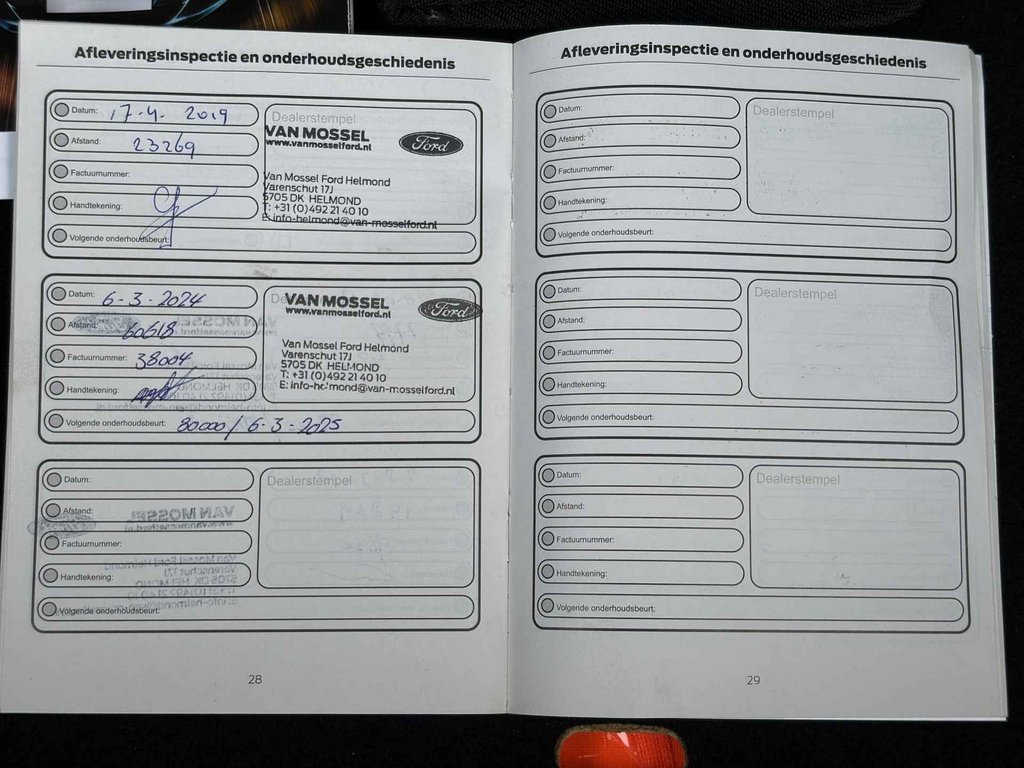 Afleveringsinspectie en onderhoudsgeschiedenis
Datum: 17-4. 2019
Afstand: 23269
Factuurnummer:
Handtekening:
Volgende onderhoudsbeurt:
Dealerstempel
VAN MOSSEL
www.vanmosselford.nl
Ford
Van Mossel Ford Helmond
Varenschut 17J
5705 DK HELMOND
T: +31 (0)492 21 40 10
E: info-helmond@van-mosselford.nl
Datum: 6-3-2024
Afstand: 60618
Factuurnummer: 38004
Handtekening:
Volgende onderhoudsbeurt: 80000 / 6-3-2025
VAN MOSSEL
www.vanmosselford.nl
Ford
Van Mossel Ford Helmond
Varenschut 17J
5705 DK HELMOND
T: +31 (0)492 21 40 10
E: info-helmond@van-mosselford.nl
Datum:
Afstand:
Factuurnummer:
Handtekening:
Volgende onderhoudsbeurt:
Dealerstempel
28
Afleveringsinspectie en onderhoudsgeschiedenis
Datum:
Afstand:
Factuurnummer:
Handtekening:
Volgende onderhoudsbeurt:
Dealerstempel
Datum:
Afstand:
Factuurnummer:
Handtekening:
Volgende onderhoudsbeurt:
Dealerstempel
Datum:
Afstand:
Factuurnummer:
Handtekening:
Volgende onderhoudsbeurt:
Dealerstempel
29